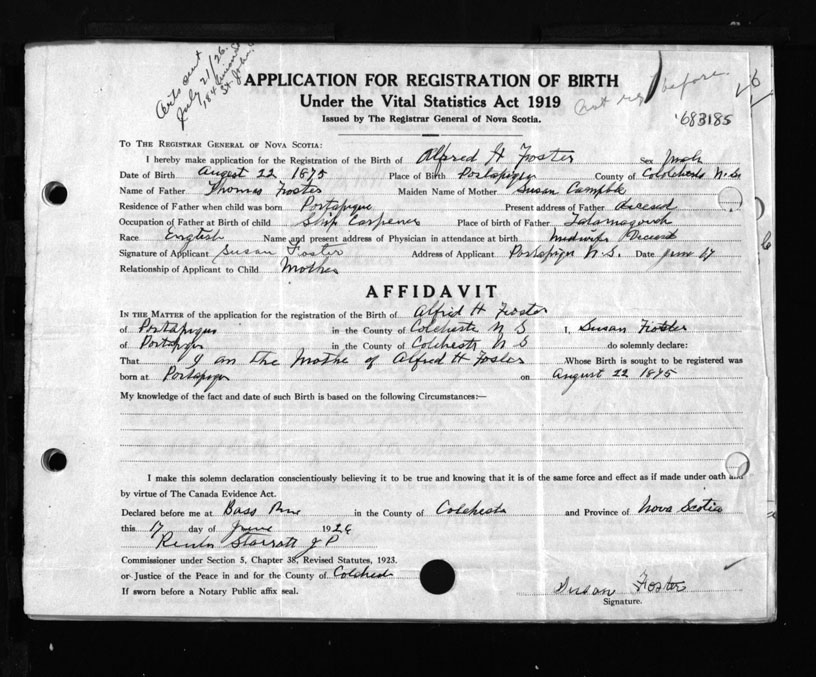 Certs sent
July 21/26
184 Union St
St. John,
not reg before.
APPLICATION FOR REGISTRATION OF BIRTH
Under the Vital Statistics Act 1919
Issued by The Registrar General of Nova Scotia.
683185
To The Registrar General of Nova Scotia:
I hereby make application for the Registration of the Birth of Alfred H Foster Sex Male
Date of Birth August 22 1875 Place of Birth Portapique County of Colchester N.S.
Name of Father Thomas Foster Maiden Name of Mother Susan Campble
Residence of Father when child was born Portapique Present address of Father Deceased
Occupation of Father at Birth of child Ship Carpener Place of birth of Father Tatamagouch
Race English Name and present address of Physician in attendance at birth Midwife Deceased
Signature of Applicant Susan Foster Address of Applicant Portapique N.S. Date June 17
Relationship of Applicant to Child Mother
AFFIDAVIT
In the Matter of the application for the registration of the Birth of Alfred H Foster
of Portapique in the County of Colchester N S I, Susan Foster
of Portapique in the County of Colchester N S do solemnly declare:
That I am the Mother of Alfred H Foster Whose Birth is sought to be registered was
born at Portapique on August 22 1875
My knowledge of the fact and date of such Birth is based on the following Circumstances:—
I make this solemn declaration conscientiously believing it to be true and knowing that it is of the same force and effect as if made under oath and
by virtue of The Canada Evidence Act.
Declared before me at Bass River in the County of Colchester and Province of Nova Scotia
this 17 day of June 1926
Starratt J P
Commissioner under Section 5, Chapter 38, Revised Statutes, 1923.
or Justice of the Peace in and for the County of Colchester
If sworn before a Notary Public affix seal.
Susan Foster
Signature.